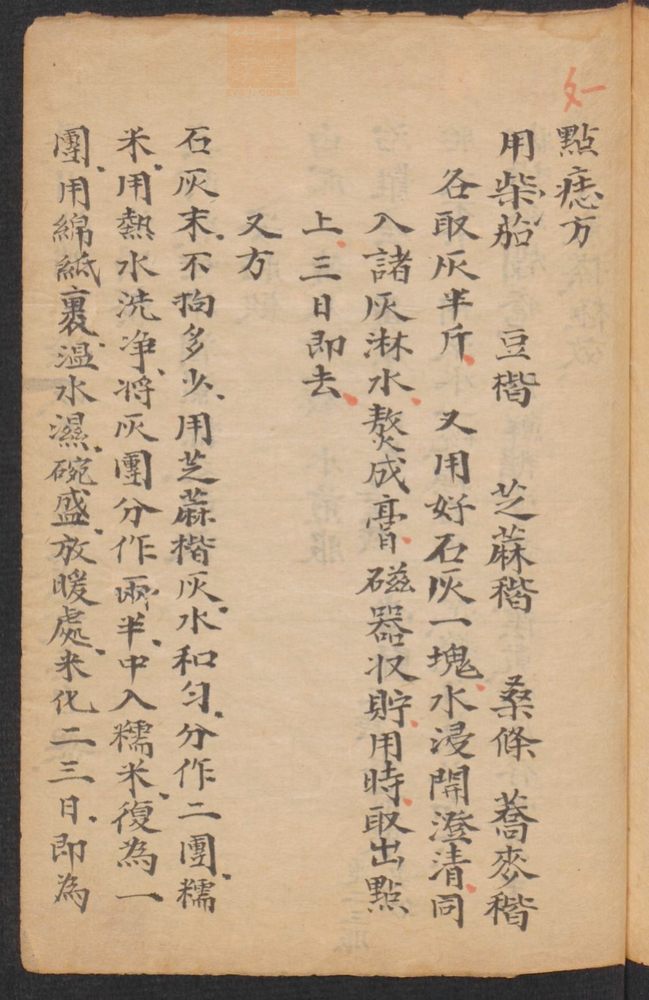 點痣方
用柴船 豆楷 芝蔴稭 桑條 蕎麥稭
各取灰半斤又用好石灰一塊水浸開澄清同
入諸灰淋水熬成膏磁器收貯用時取出點
上三日即去
又方
石灰末不拘多少用芝蔴楷灰水和勻分作二團糯
米用熱水洗净将灰團分作兩半中入糯米復為一
團用綿紙裹溫水濕碗盛放暖處米化二三日即為